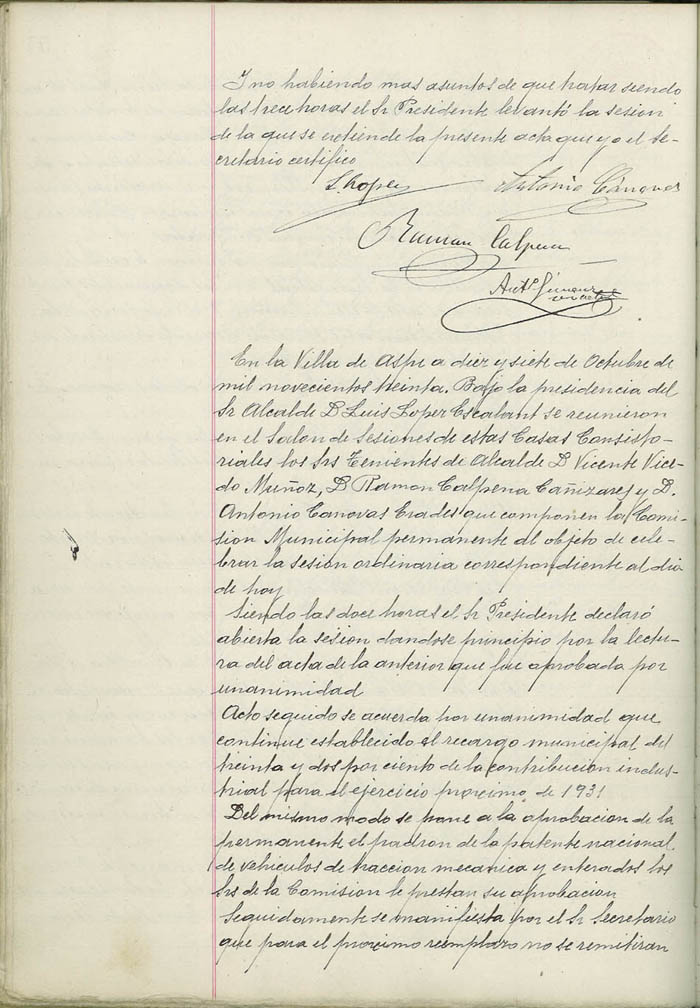 I no habiendo mas asuntos de que tratar siendo
las trece horas el Sr Presidente levantó la sesion
de la que se extiende la presente acta que yo el Se-
cretario certifico
L. Lopez Antonio Cánovas
Ramon Calpena
Antº Gimenez
En la Villa de Aspe a diez y siete de Octubre de
mil novecientos treinta. Bajo la presidencia del
Sr Alcalde D Luis Lopez Escalant se reunieron
en el Salon de Sesiones de estas Casas Consisto-
riales los Srs Tenientes de Alcalde D Vicente Vice-
do Muñoz, D Ramon Calpena Cañizares y D.
Antonio Canovas Erades que componen la Comi-
sion Municipal permanente al objeto de cele-
brar la sesion ordinaria correspondiente al dia
de hoy
Siendo las doce horas el Sr Presidente declaró
abierta la sesion dandose principio por la lectu-
ra del acta de la anterior que fue aprobada por
unanimidad
Acto seguido se acuerda por unanimidad que
continue establecido el recargo municipal del
treinta y dos por ciento de la contribucion indus-
trial para el ejercicio proximo de 1931
Del mismo modo se pone a la aprobacion de la
permanente el padron de la patente nacional
de vehiculos de traccion mecanica y enterados los
Srs de la Comision le prestan su aprobacion
Seguidamente se manifiesta por el Sr Secretario
que para el proximo reemplazo no se remitiran